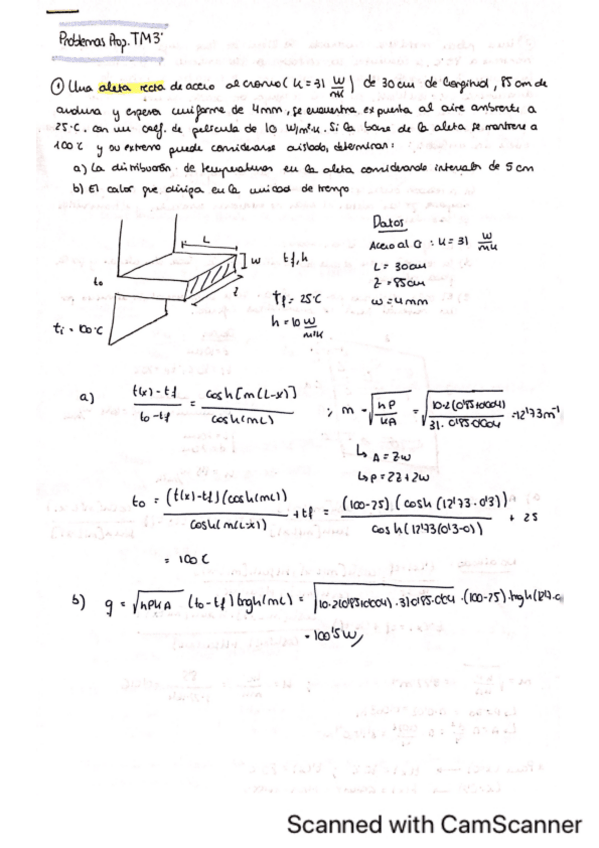 Problemas Prop. TM3'
① Una aleta recta de acero al cromo (k = 31 W/mK) de 30 cm de longitud, 85 cm de
anchura y espesor uniforme de 4mm, se encuentra expuesta al aire ambiente a
25°C. con un coef. de película de 10 W/m²K. Si la base de la aleta se mantiene a
100°C y su extremo puede considerarse aislado, determinar:
a) La distribución de temperaturas en la aleta considerando intervalos de 5 cm
b) El calor que disipa en la unidad de tiempo
L
w
z
to
tf, h
tf = 25°C
h = 10 W/m²K
ti = 100°C
Datos
Acero al Cr : k = 31 W/mK
L = 30cm
Z = 85cm
w = 4mm
a) (t(x) - tf)/(to - tf) = cosh[m(L-x)]/cosh(mL) ; m = √(hP/kA) = √(10·2(0'85+0'004)/(31·0'85·0'004)) = 12'73 m⁻¹
↳ A = Zw
↳ P = 2Z + 2w
to = (t(x)-tf)(cosh(mL))/cosh(m(L-x)) + tf = (100-25)(cosh(12'73·0'3))/cosh(12'73(0'3-0)) + 25
= 100 C
b) q = √hPkA (to - tf) tgh(mL) = √10·2(0'85+0'004)·31·0'85·0'004 · (100-25)·tgh(
= 100'5 W
Scanned with CamScanner